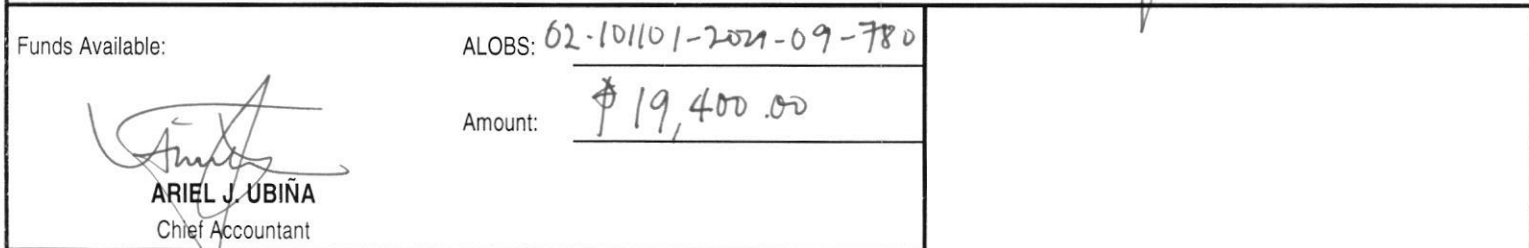 Funds Available:
ALOBS: 02-101101-2021-09-780
Amount: ₱ 19,400.00
ARIEL J. UBIÑA
Chief Accountant